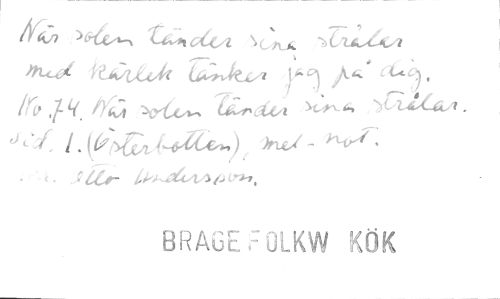 När solen tänder sina strålar
med kärlek tänker jag på dig.
No. 74. När solen tänder sina strålar.
sid. 1. (Österbotten), mel-not.
Otto Andersson.
BRAGE FOLKW KÖK